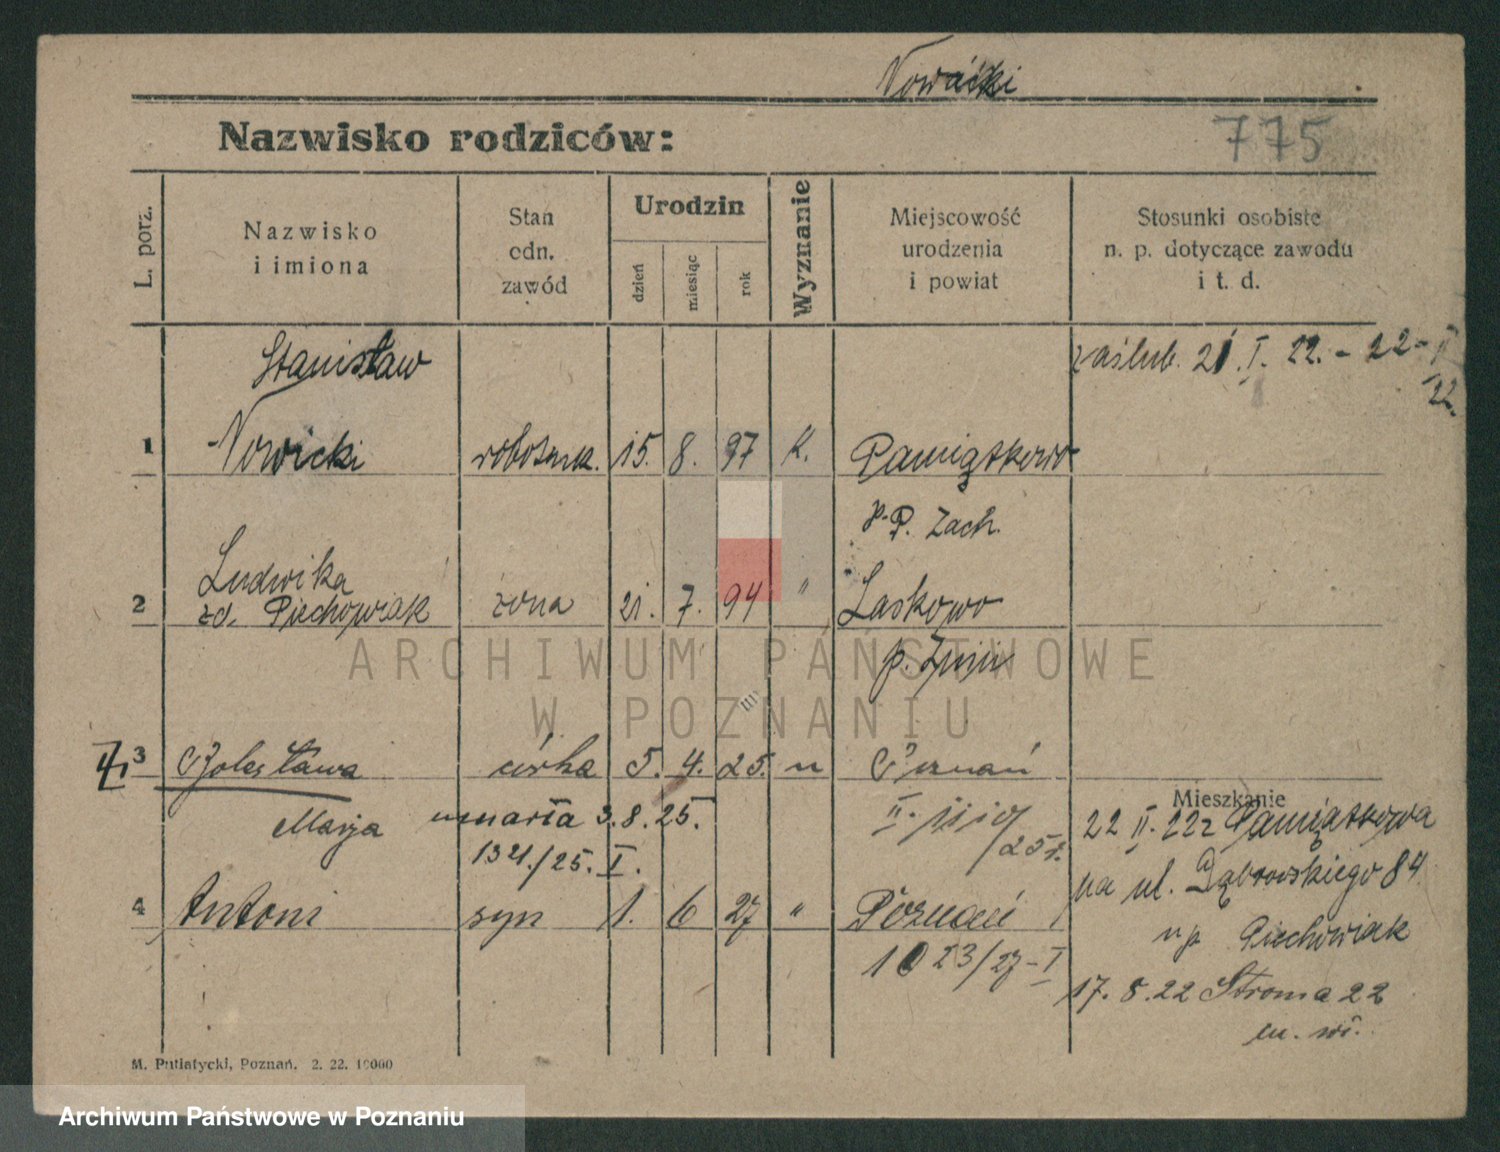 Nowacki
Nazwisko rodziców:
775
L. porz.
Nazwisko
i imiona
Stan
odn.
zawód
Urodzin
dzień
miesiąc
rok
Wyznanie
Miejscowość
urodzenia
i powiat
Stosunki osobiste
n. p. dotyczące zawodu
i t. d.
Stanisław
zaślub. 21. I. 22. - 22 - II
22.
1 Nowicki robotnik. 15. 8. 97 k. Pamiątkowo
p. P. Zach.
Ludwika
2 zd. Piechowiak żona 21. 7. 94 " Laskowo
p. Żnin
ARCHIWUM PAŃSTWOWE
W POZNANIU
3 Bolesława córka 5. 4. 25. " Poznań
Mieszkanie
Marja umarła 3. 8. 25.
/25 r.
22 II. 22 z Pamiątkowa
1321./25. I.
na ul. Dąbrowskiego 84
4 Antoni syn 1. 6 27 " Poznań
u p Piechowiak
1023/27 - I
17. 8. 22 Stroma 22
m. wł.
M. Putiatycki, Poznań. 2. 22. 10000
Archiwum Państwowe w Poznaniu